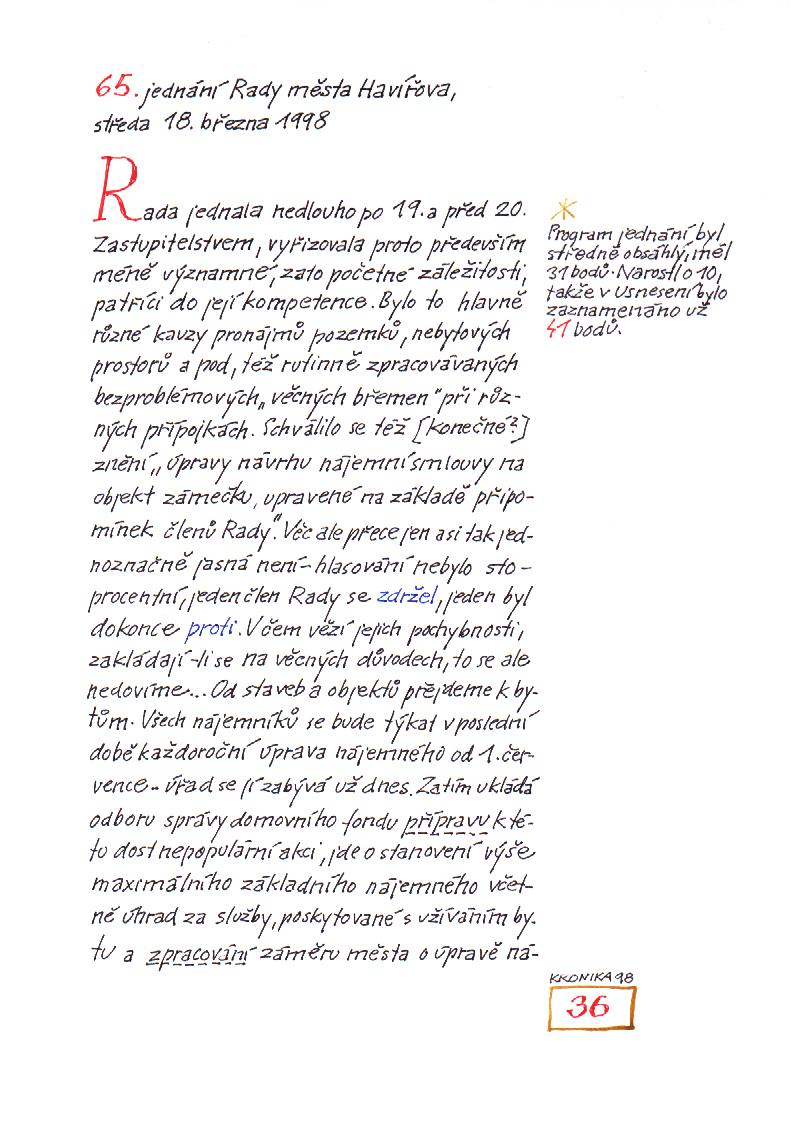 65. jednání Rady města Havířova,
středa 18. března 1998
Rada jednala nedlouho po 19. a před 20.
Zastupitelstvem, vyřizovala proto především
méně významné, zato početné záležitosti,
patřící do její kompetence. Bylo to hlavně
různé kauzy pronájmů pozemků, nebytových
prostorů a pod, též rutinně zpracovávaných
bezproblémových „věcných břemen“ při růz-
ných přípojkách. Schválilo se též [konečné?]
znění „úpravy návrhu nájemní smlouvy na
objekt zámečku, upravené na základě připo-
mínek členů Rady“. Věc ale přece jen asi tak jed-
noznačně jasná není - hlasování nebylo sto-
procentní, jeden člen Rady se zdržel, jeden byl
dokonce proti. V čem vězí jejich pochybnosti,
zakládají-li se na věcných důvodech, to se ale
nedovíme... Od staveb a objektů přejdeme k by-
tům. Všech nájemníků se bude týkat v poslední
době každoroční úprava nájemného od 1. čer-
vence - úřad se jí zabývá už dnes. Zatím ukládá
odboru správy domovního fondu přípravu k té-
to dost nepopulární akci, jde o stanovení výše
maximálního základního nájemného včet-
ně úhrad za služby, poskytované s užíváním by-
tu a zpracování záměru města o úpravě ná-
*
Program jednání byl
středně obsáhlý, měl
31 bodů. Narostl o 10,
takže v Usnesení bylo
zaznamenáno už
41 bodů.
KRONIKA 98
36